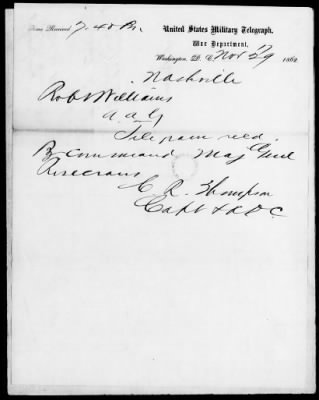 Time Received 7.40 Pm. United States Military Telegraph,
War Department,
Washington, D. C. Nov 29 1862
Nashville
Robt Williams
A A G
Telegram recd
By command Maj Genl
Rosecrans
C. R. Thompson
Capt & A D C